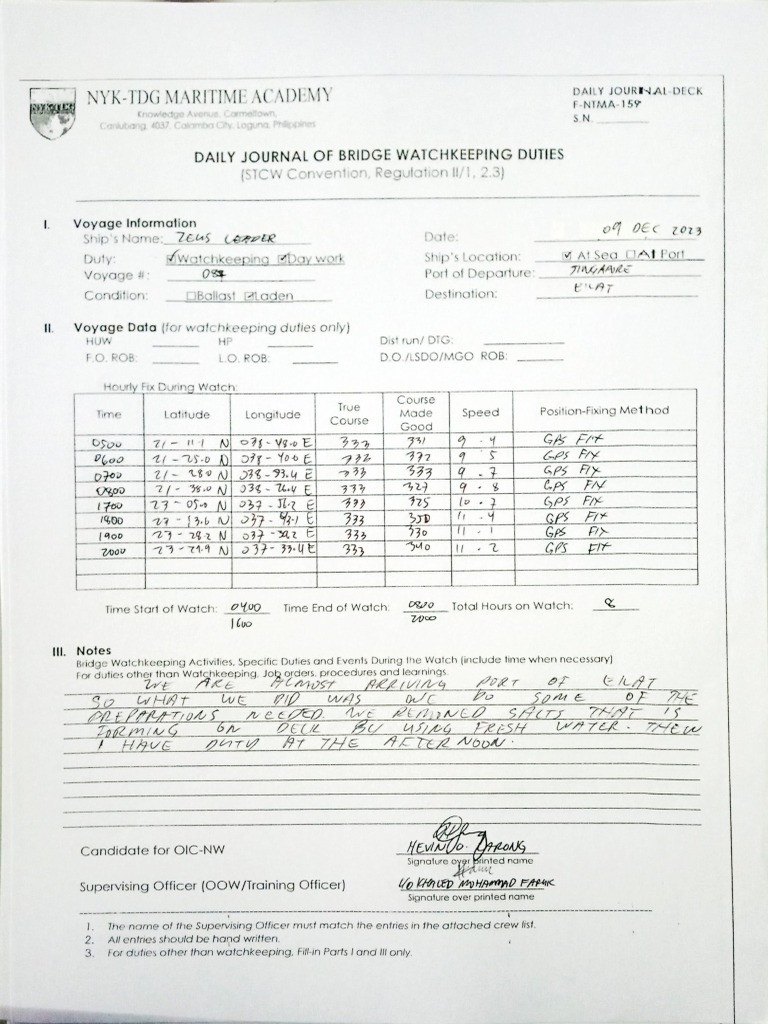 NYK-TDG MARITIME ACADEMY
Knowledge Avenue, Carmeltown,
Canlubang, 4037, Calamba City, Laguna, Philippines
DAILY JOURNAL-DECK
F-NTMA-159
S.N.
DAILY JOURNAL OF BRIDGE WATCHKEEPING DUTIES
(STCW Convention, Regulation II/1, 2.3)
I. Voyage Information
Ship's Name: ZEUS LEADER Date: 09 DEC 2023
Duty: ☑Watchkeeping ☑Day work Ship's Location: ☑ At Sea ☐At Port
Voyage #: 087 Port of Departure: SINGAPORE
Condition: ☐Ballast ☑Laden Destination: EILAT
II. Voyage Data (for watchkeeping duties only)
HUW HP Dist run/ DTG:
F.O. ROB: L.O. ROB: D.O./LSDO/MGO ROB:
Hourly Fix During Watch:
Time Latitude Longitude True Course Course Made Good Speed Position-Fixing Method
0500 21 - 11.1 N 038 - 48.0 E 333 331 9 . 4 GPS FIX
0600 21 - 25.0 N 038 - 40.0 E 332 332 9 5 GPS FIX
0700 21 - 28.0 N 038 - 33.4 E 333 333 9 . 7 GPS FIX
0800 21 - 38.0 N 038 - 26.4 E 333 327 9 . 8 GPS FIX
1700 23 - 05.0 N 037 - 51.2 E 333 325 10 . 7 GPS FIX
1800 23 - 13.6 N 037 - 43.1 E 333 330 11 . 4 GPS FIX
1900 23 - 28.2 N 037 - 38.2 E 333 330 11 . 1 GPS FIX
2000 23 - 29.9 N 037 - 33.4 E 333 340 11 . 2 GPS FIX
Time Start of Watch: 0400 Time End of Watch: 0800 Total Hours on Watch: 8
1600 2000
III. Notes
Bridge Watchkeeping Activities, Specific Duties and Events During the Watch (include time when necessary)
For duties other than Watchkeeping, Job orders, procedures and learnings.
WE ARE ALMOST ARRIVING PORT OF EILAT
SO WHAT WE DID WAS WE DO SOME OF THE
PREPARATIONS NEEDED. WE REMOVED SALTS THAT IS
FORMING ON DECK BY USING FRESH WATER. THEN
I HAVE DUTY AT THE AFTERNOON.
Candidate for OIC-NW KEVIN O. DARONG
Signature over printed name
Supervising Officer (OOW/Training Officer) C/O KHALED MOHAMMAD FARUK
Signature over printed name
1. The name of the Supervising Officer must match the entries in the attached crew list.
2. All entries should be hand written.
3. For duties other than watchkeeping, Fill-in Parts I and III only.